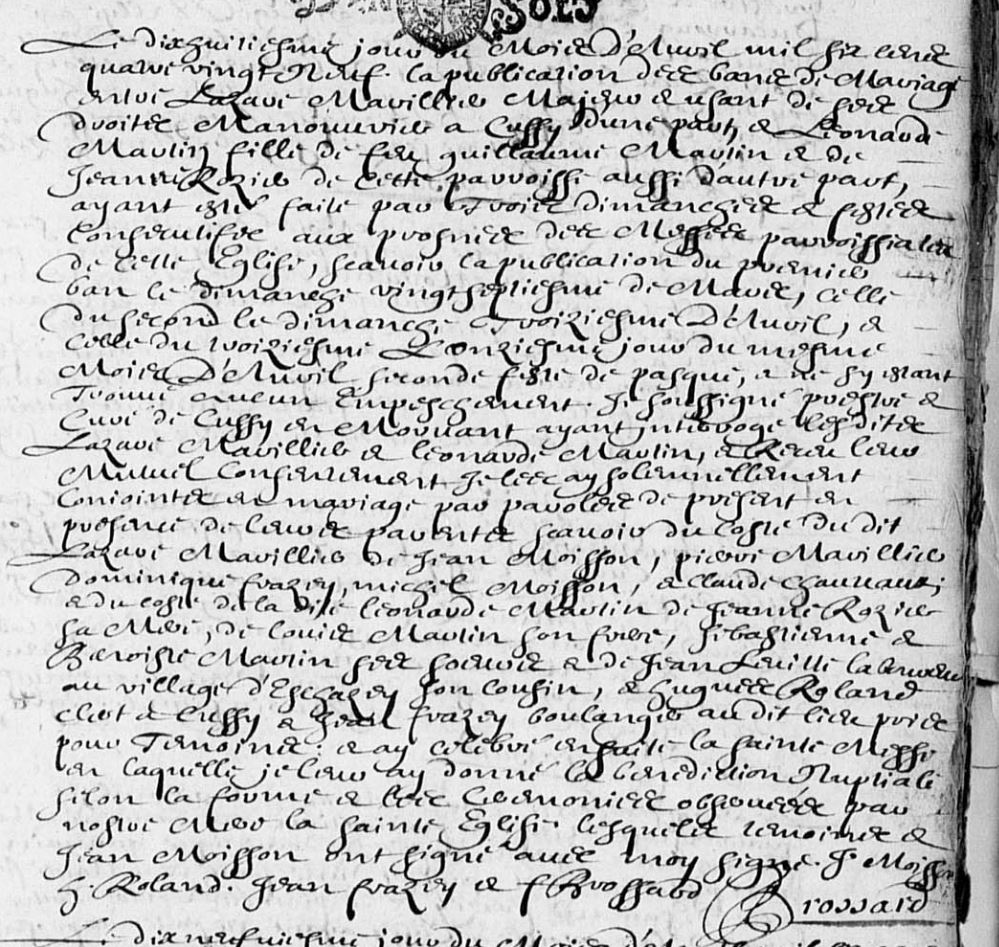 SOLS
Le dixhuitiesme jour du Mois D'Auril mil six cens
quatre vingt Neuf. la publication des bans de Mariage
entre Lazare Mavillier Majeur & usant de ses
droites Manouurier a Cussy d'une part, & Leonarde
Martin fille de feu guillaume Martin & de
Jeanne Rozier de cette parroisse aussi d'autre part,
ayant esté faite par Trois dimanches & festes
consecutifve aux prosnes des Messes parroissiales
de cette Eglise, scauoir la publication du premier
ban le dimanche vingtseptiesme de Mars, celle
du second le dimanche Troiziesme D'Auril, &
celle du troiziesme L'onziesme jour du mesme
Mois D'Auril seconde feste de pasque, & ne sy estant
Trouué aucun Empeschement. Je soussigné prestre &
Curé de Cussy en Moruant ayant jnterrogé lesdites
Lazare Mavillier & leonarde Martin, & Receu leur
Mutuel Consentement Je les ay solennellement
Conjointes en mariage par paroles de present en
presence de leurs parentes scauoir du Costé du dit
Lazare Mavillier de Jean Moisson, pierre Mavillier
Dominique frazey, michel Moisson, & claude Chauuaux;
& du costé de la dite leonarde Martin de Jeanne Rozier
sa Mere, de louis Martin son frere, sebastienne &
Benoiste Martin ses soeurs & de Jean Leuitte laboureur
au village d'Eschagey son cousin, & hugues Roland
clerc a Cussy & Jean frazey boulanger audit lieu pris
pour Temoines. & ay celebré ensuite la sainte Messe
en laquelle je leur ay donné la benediction Nuptiale
selon la forme & les Ceremonies obseruées par
nostre Mere la sainte Eglise. lesquels temoines &
Jean Moisson ont signé auec moy signe. J. Moisson
h. Roland. Jean frazey & f Brossard Brossard
Le dixneufuiesme jour du Mois d'A